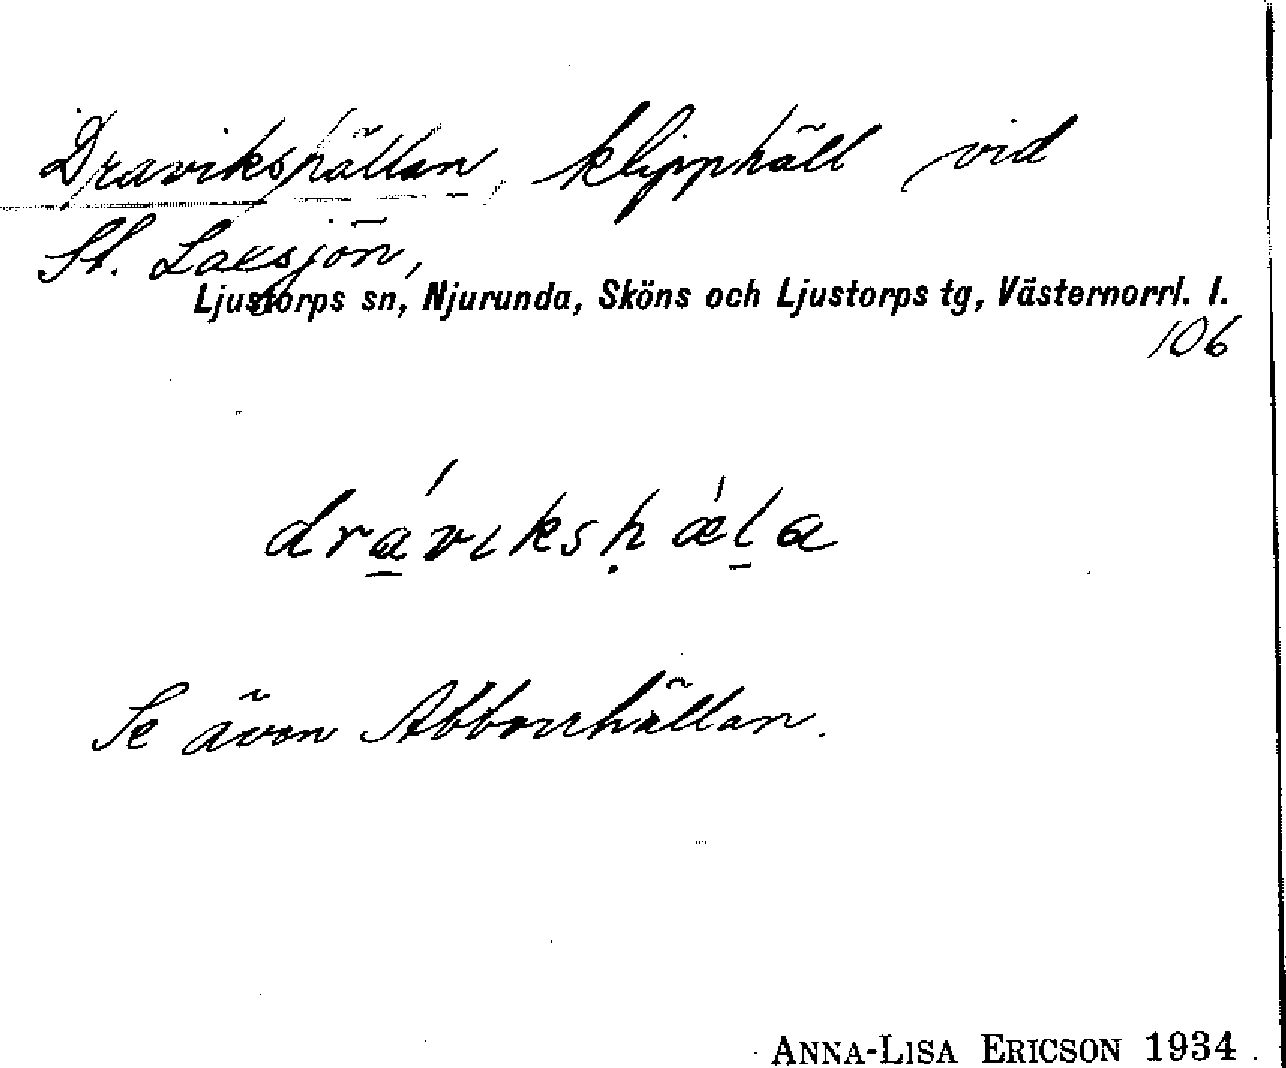 Dravikshällan, klipphäll vid
St. Laxsjön,
Ljustorps sn, Njurunda, Sköns och Ljustorps tg, Västernorrl. l.
106
drá̲vɩksḥǽl̲a
Se även Abborrhällan.
ANNA-LISA ERICSON 1934